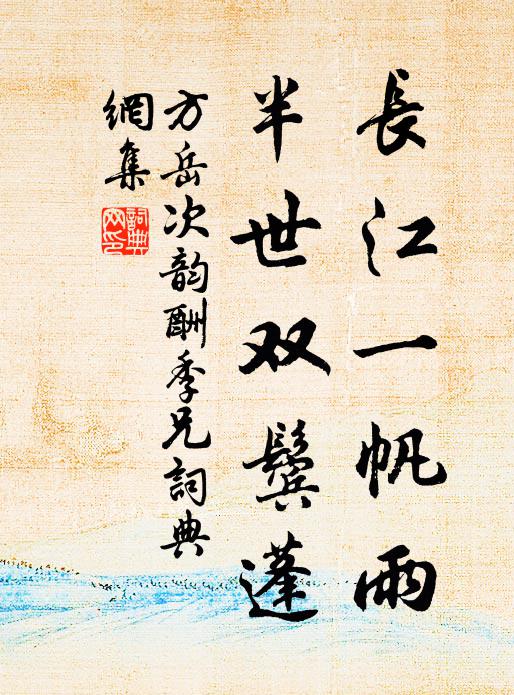 長江一帆雨
半世双鬓蓬
方岳次韵酬季兄詞典
網集
詞典
网印